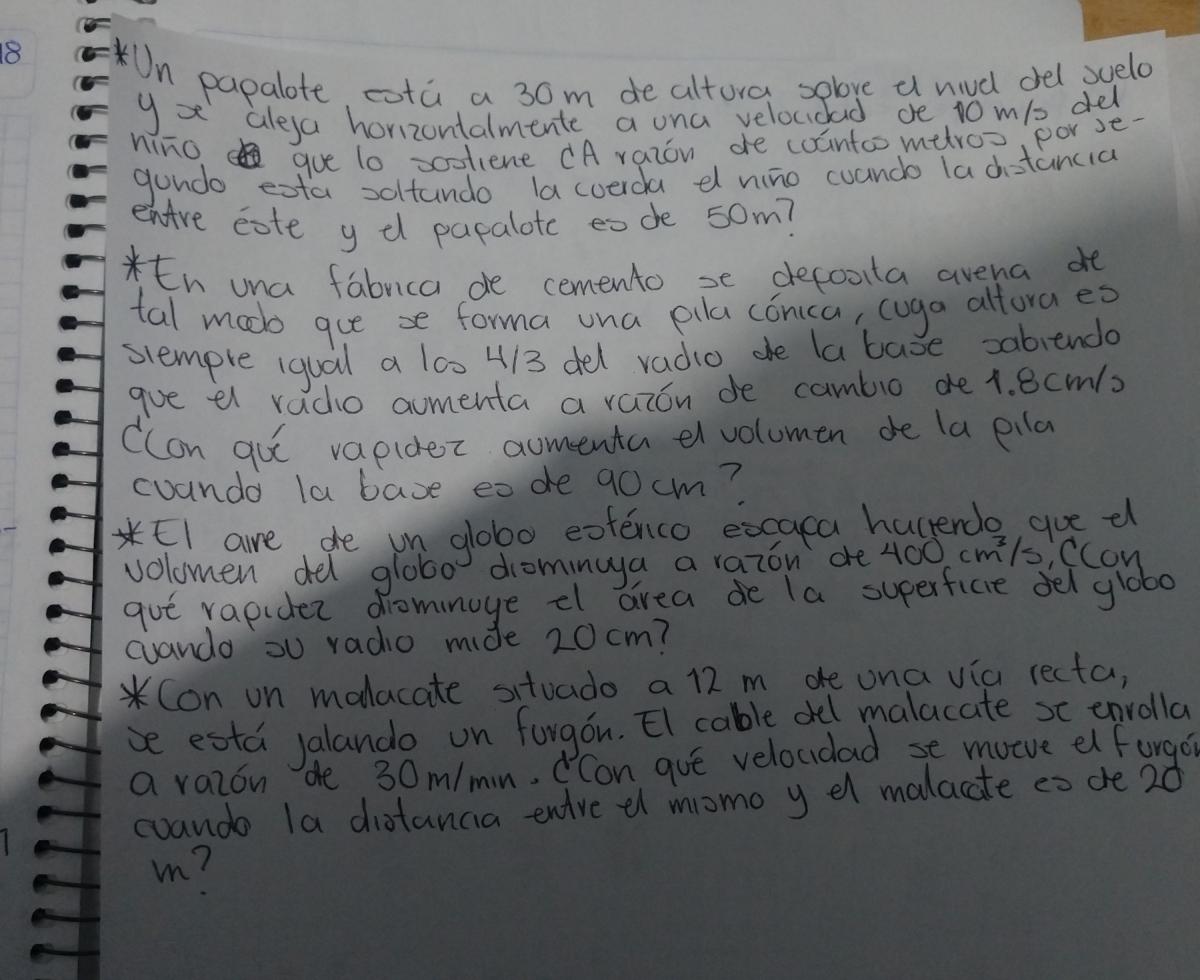 18
*Un papalote está a 30m de altura sobre el nivel del suelo
y se aleja horizontalmente a una velocidad de 10 m/s del
niño que lo sostiene ¿A razón de cuántos metros por se-
gundo esta soltando la cuerda el niño cuando la distancia
entre éste y el papalote es de 50m?
*En una fábrica de cemento se deposita avena de
tal modo que se forma una pila cónica, cuya altura es
siempre igual a los 4/3 del radio de la base sabiendo
que el radio aumenta a razón de cambio de 1.8cm/s
¿Con qué rapidez aumenta el volumen de la pila
cuando la base es de 90cm?
*El aire de un globo esférico escapa haciendo que el
volumen del globo disminuya a razón de 400 cm³/s, ¿Con
qué rapidez disminuye el área de la superficie del globo
cuando su radio mide 20cm?
*Con un malacate situado a 12 m de una vía recta,
se está jalando un furgón. El cable del malacate se enrolla
a razón de 30m/min. ¿Con qué velocidad se mueve el furgón
cuando la distancia entre el mismo y el malacate es de 20
m?